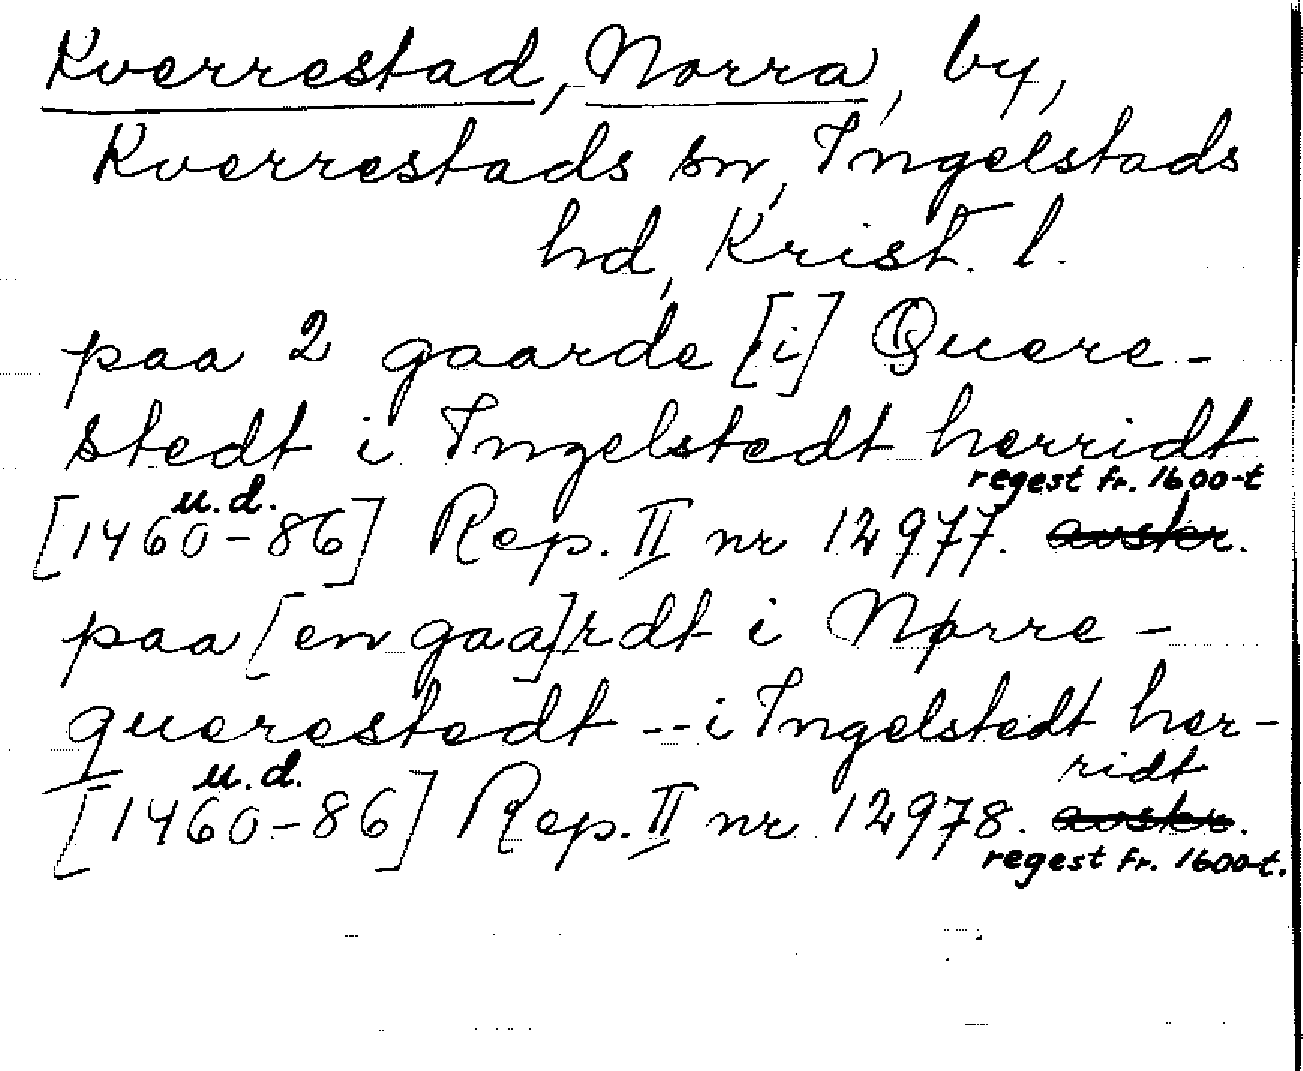 Kverrestad, Norra, by,
Kverrestads sn, Ingelstads
hd, Krist. l.
paa 2 gaarde [i] Quere-
stedt i Ingelstedt herridt
u.d. regest fr. 1600-t
[1460-86] Rep. II nr 12977. avskr.
paa [en gaa]rdt i Nørre-
querestedt -- i Ingelstedt her-
u.d. ridt
[1460-86] Rep. II nr 12978. avskr.
regest fr. 1600-t.